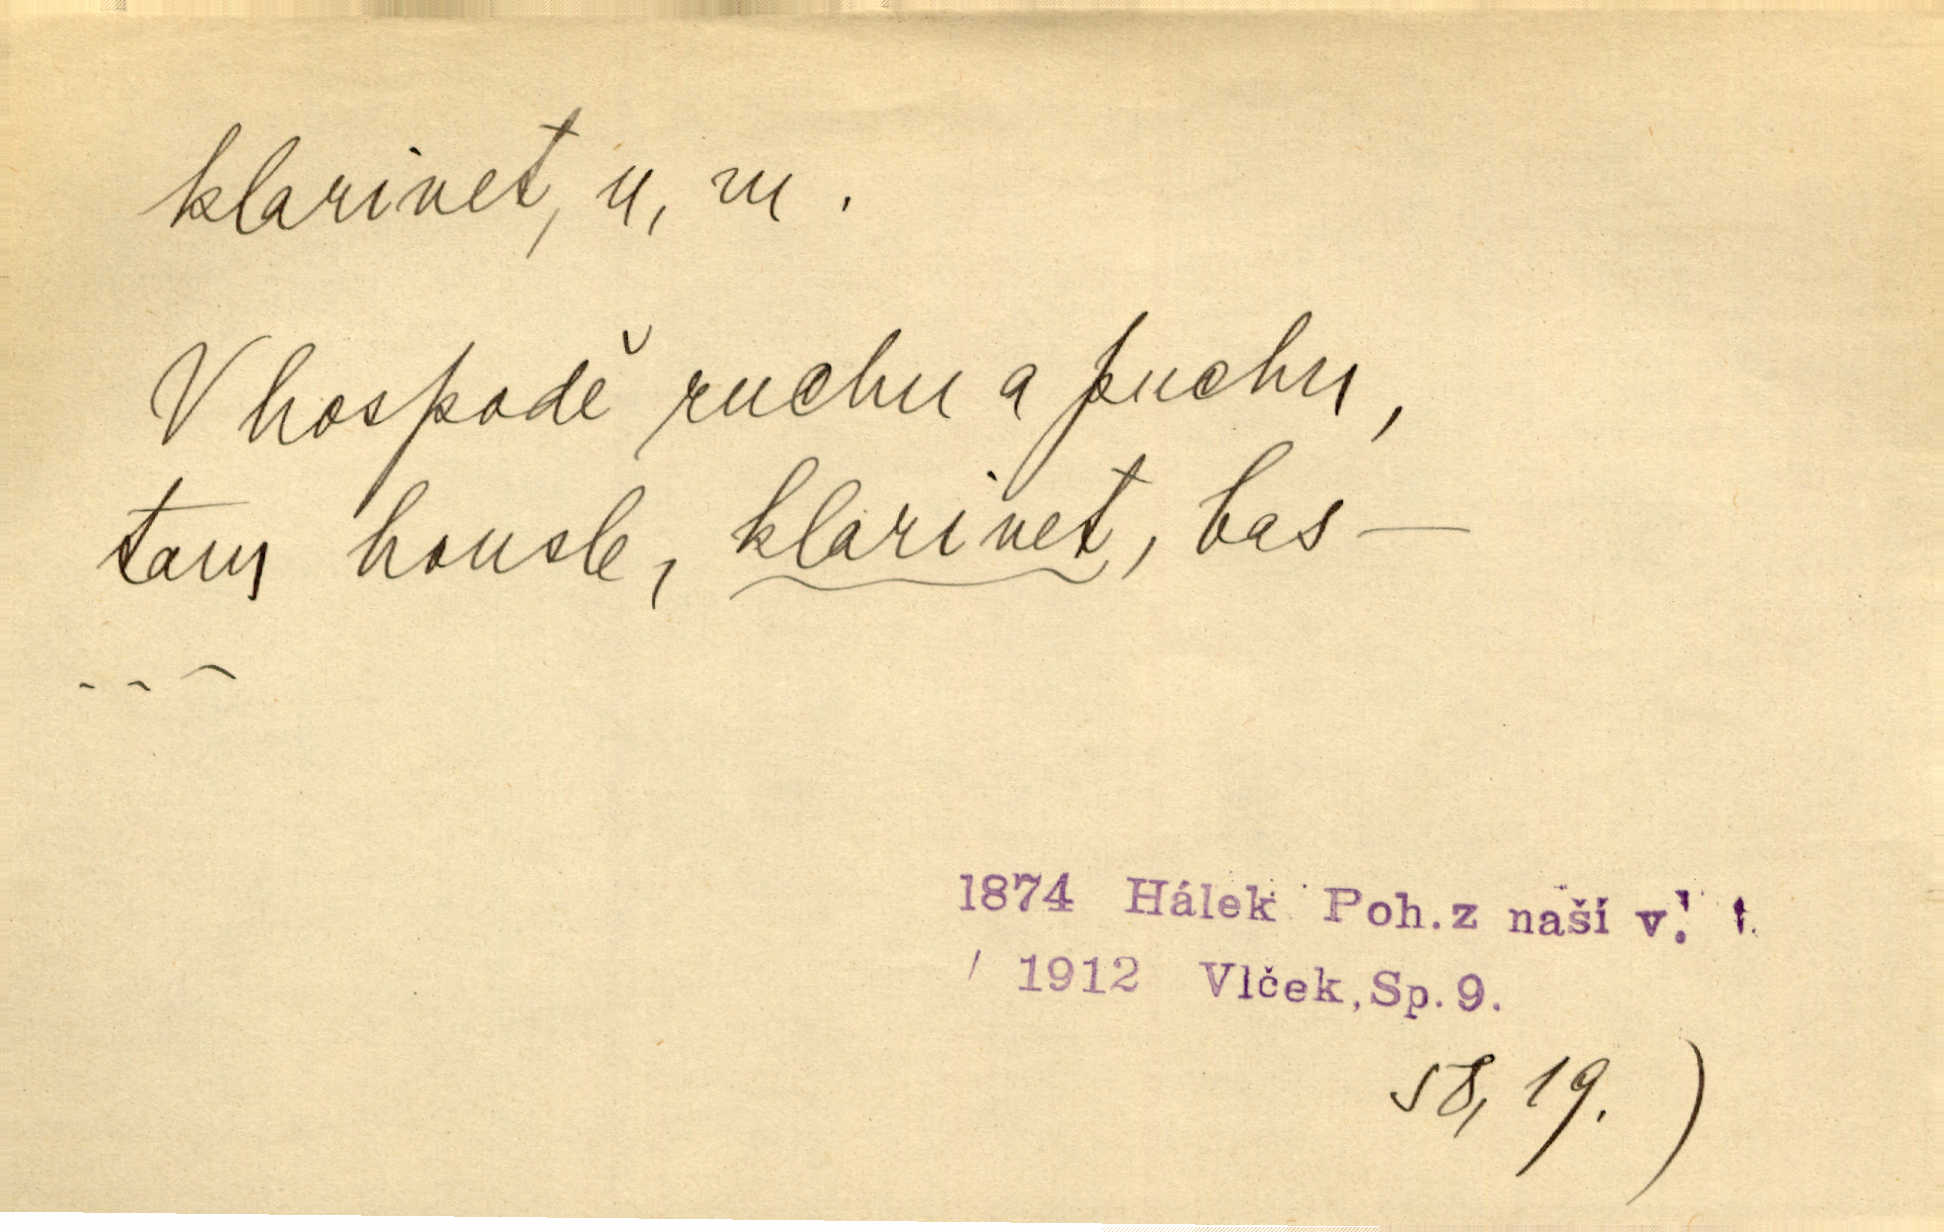 klarinet, u, m.
V hospodě ruchu a puchu,
tam housle, klarinet, bas —
---
1874 Hálek Poh. z naší v.
/ 1912 Vlček, Sp. 9.
58, 19. )